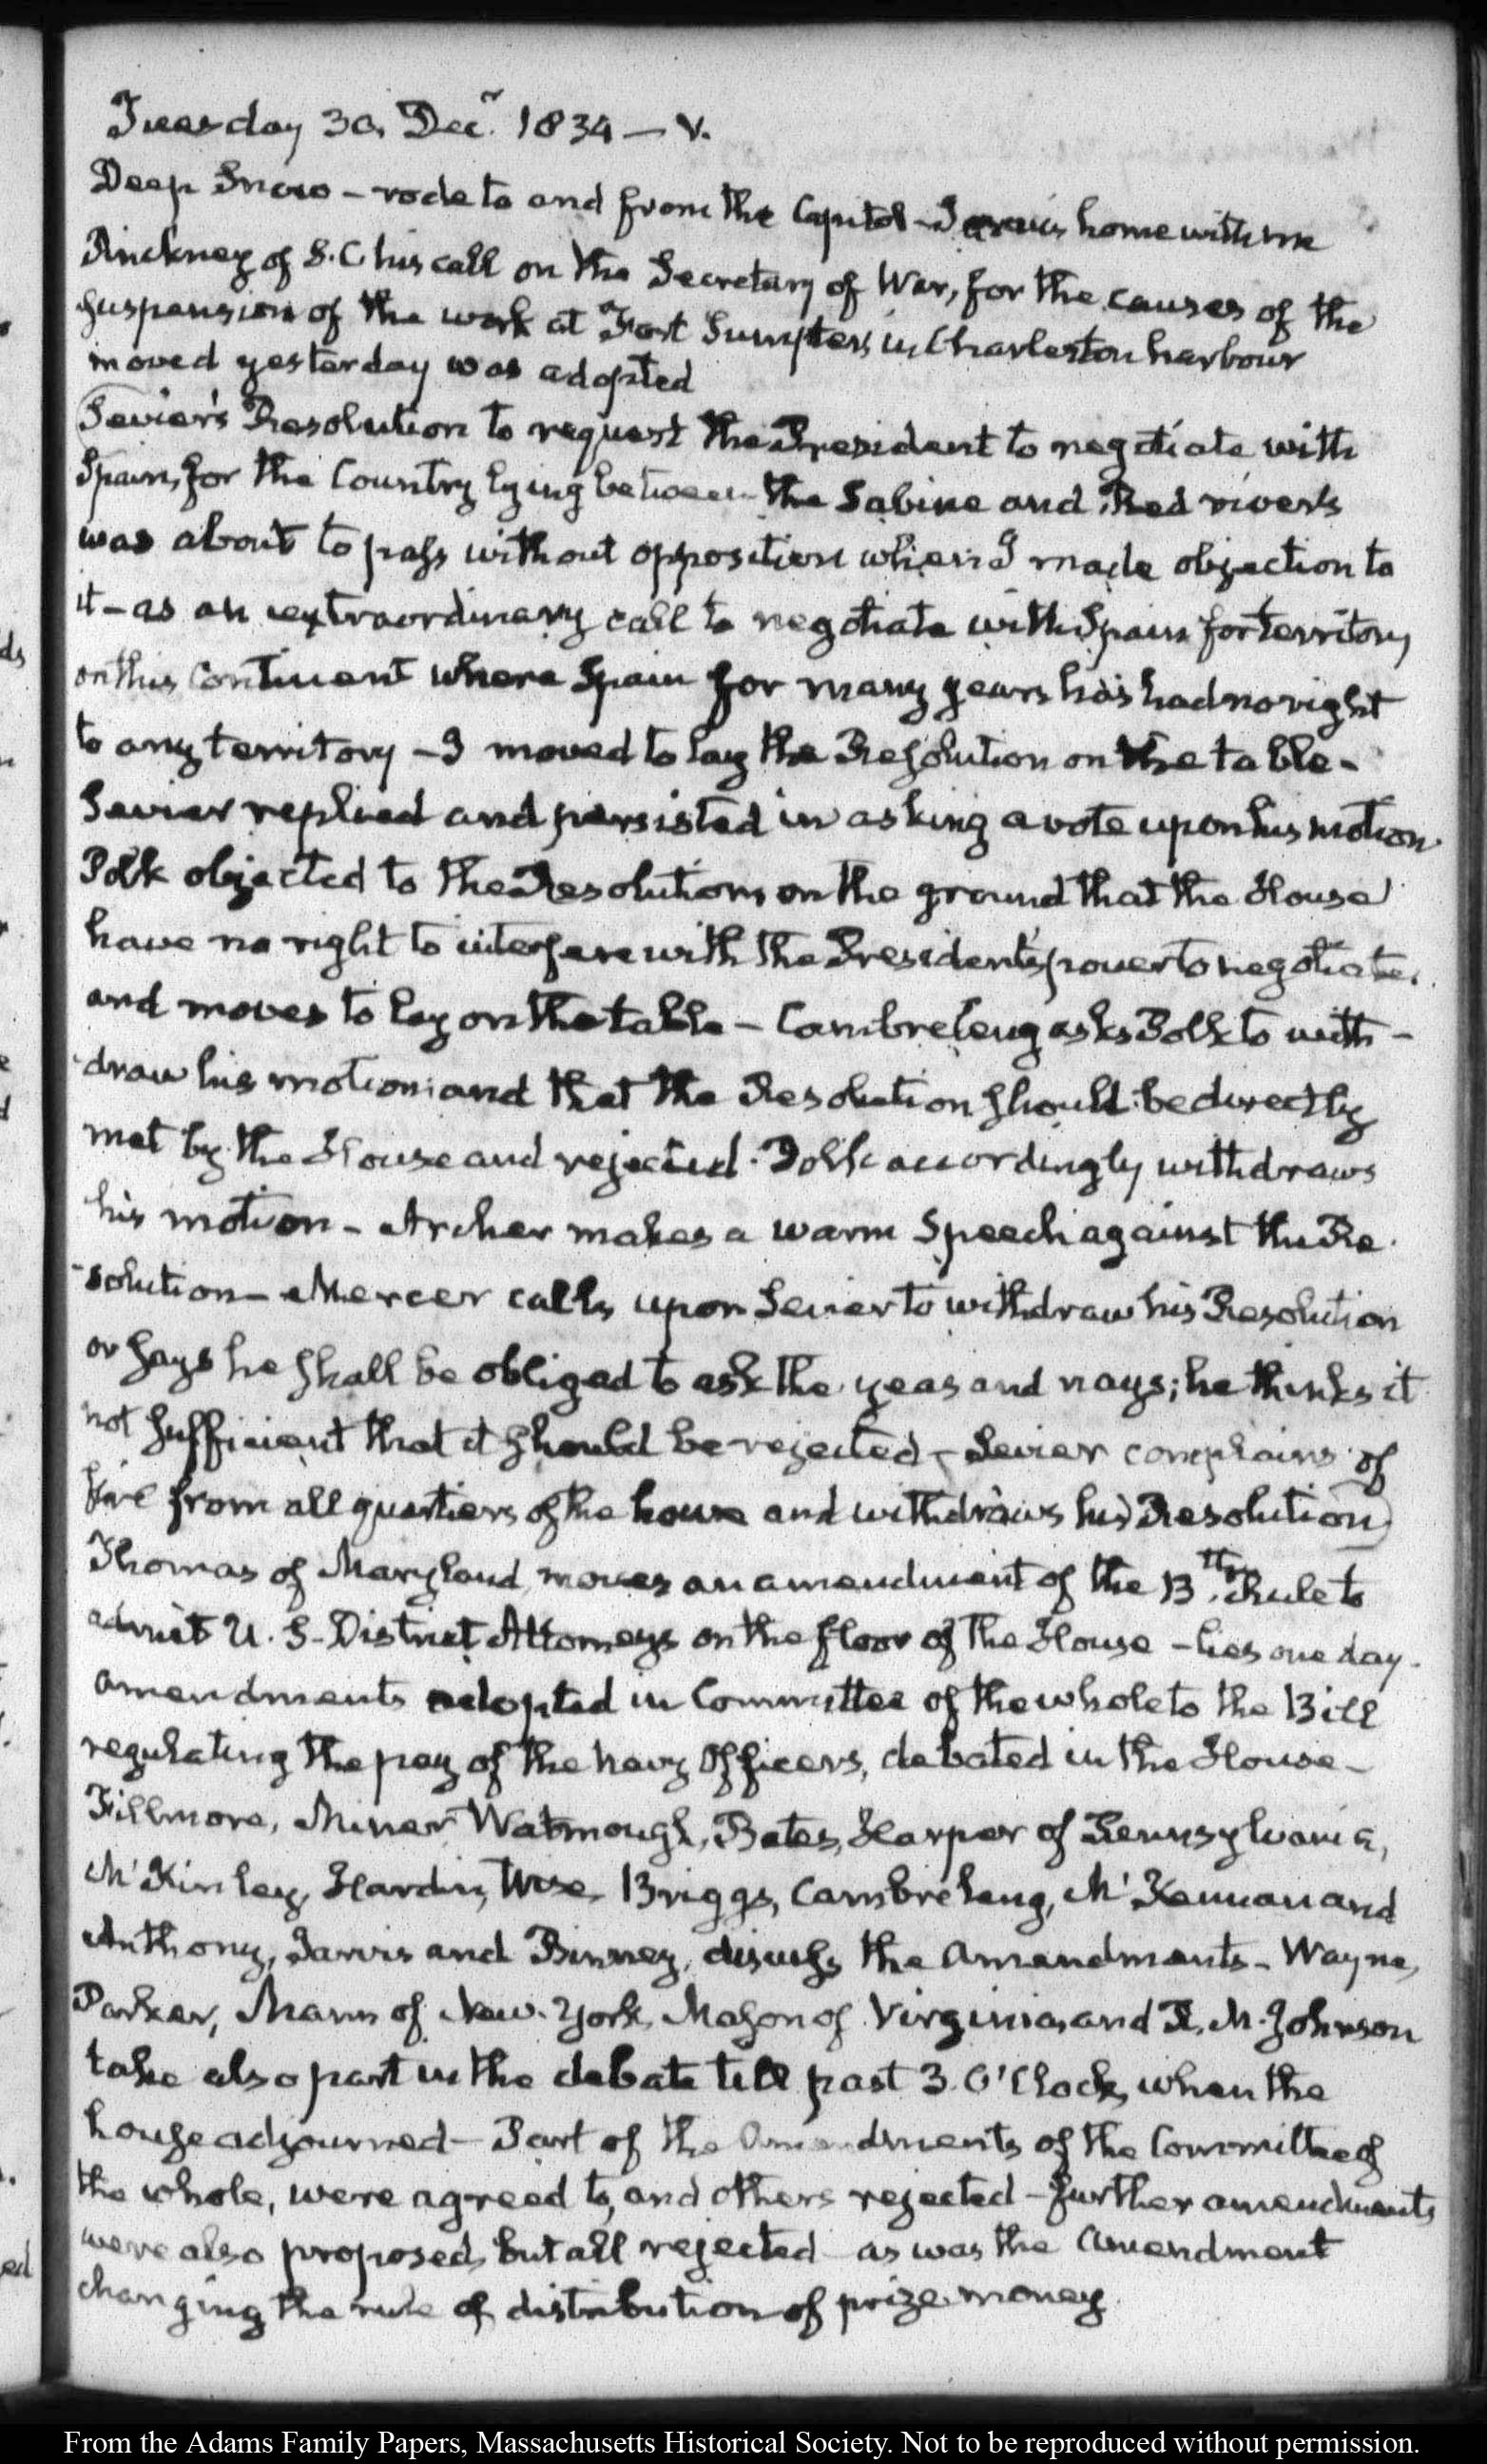 Tuesday 30. Decr. 1834 — V.
Deep Snow – rode to and from the Capitol – Jarvis home with me
Pinckney of S.C. his call on the Secretary of War, for the causes of the
suspension of the work at Fort Sumpter, in Charleston harbour
moved yesterday was adopted
Sevier's Resolution to request the President to negotiate with
Spain, for the Country lying between the Sabine and Red rivers
was about to pass without opposition when I made objection to
it – as an extraordinary call to negotiate with Spain for territory
on this Continent where Spain for many years has had no right
to any territory – I moved to lay the Resolution on the table –
Sevier replied and persisted in asking a vote upon his motion.
Polk objected to the Resolution, on the ground that the House
have no right to interfere with the President's power to negotiate.
and moves to lay on the table – Cambreleng asks Polk to with-
draw his motion and that the Resolution should be directly
met by the House and rejected. Polk accordingly withdraws
his motion – Archer makes a warm Speech against the Re-
-solution – Mercer calls upon Sevier to withdraw his Resolution
or says he shall be obliged to ask the yeas and nays; he thinks it
not sufficient that it should be rejected – Sevier complains of
fire from all quarters of the house and withdraws his Resolution
Thomas of Maryland moves an amendment of the 13th. Rule to
admit U. S. District Attorneys on the floor of the House – lies one day.
amendments adopted in Committee of the whole to the Bill
regulating the pay of the Navy Officers, debated in the House –
Fillmore, Miner Watmough, Bates, Harper of Pennsylvania,
McKinley, Hardin, Wise, Briggs, Cambreleng, McKennan and
Anthony, Jarvis and Binney, discuss the Amendments – Wayne,
Parker, Mann of New-York, Mason of Virginia, and R. M. Johnson
take also part in the debate till past 3. O'Clock, when the
house adjourned – Part of the Amendments of the Committee of
the whole, were agreed to, and others rejected – further amendments
were also proposed, but all rejected – as was the Amendment
changing the rule of distribution of prize-money
From the Adams Family Papers, Massachusetts Historical Society. Not to be reproduced without permission.